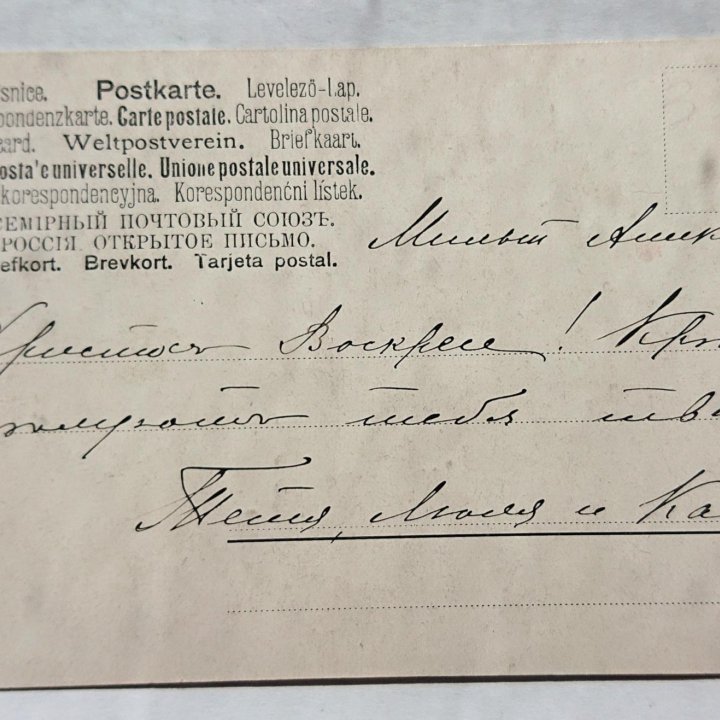 snice. Postkarte. Levelező-Lap.
pondenzkarte. Carte postale. Cartolina postale.
card. Weltpostverein. Briefkaart.
osta'e universelle. Unione postale universale.
korespondencyjna. Korespondenční lístek.
СЕМІРНЫЙ ПОЧТОВЫЙ СОЮЗЪ.
РОССІЯ. ОТКРЫТОЕ ПИСЬМО.
efkort. Brevkort. Tarjeta postal.
Милый Алек
Христосъ Воскресе! Кр
тебя тв
Тетя, Люля и Ка